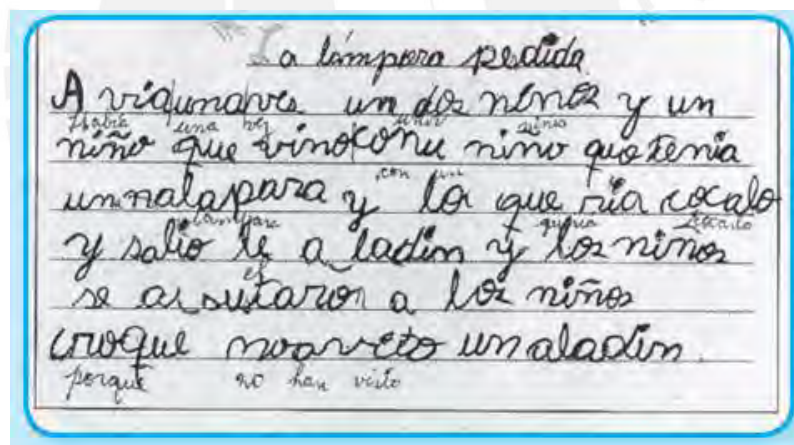 La lámpara perdida
A viaunaves un dos nenos y un
Habia una vez unos niños
niño que vinoconu nino quetenia
con un
unnalapara y lo que ria cocalo
lampara queria
y salio le a ladin y los ninos
el
se asustaron a los niños
croque noavieto unaladin.
porque no han visto